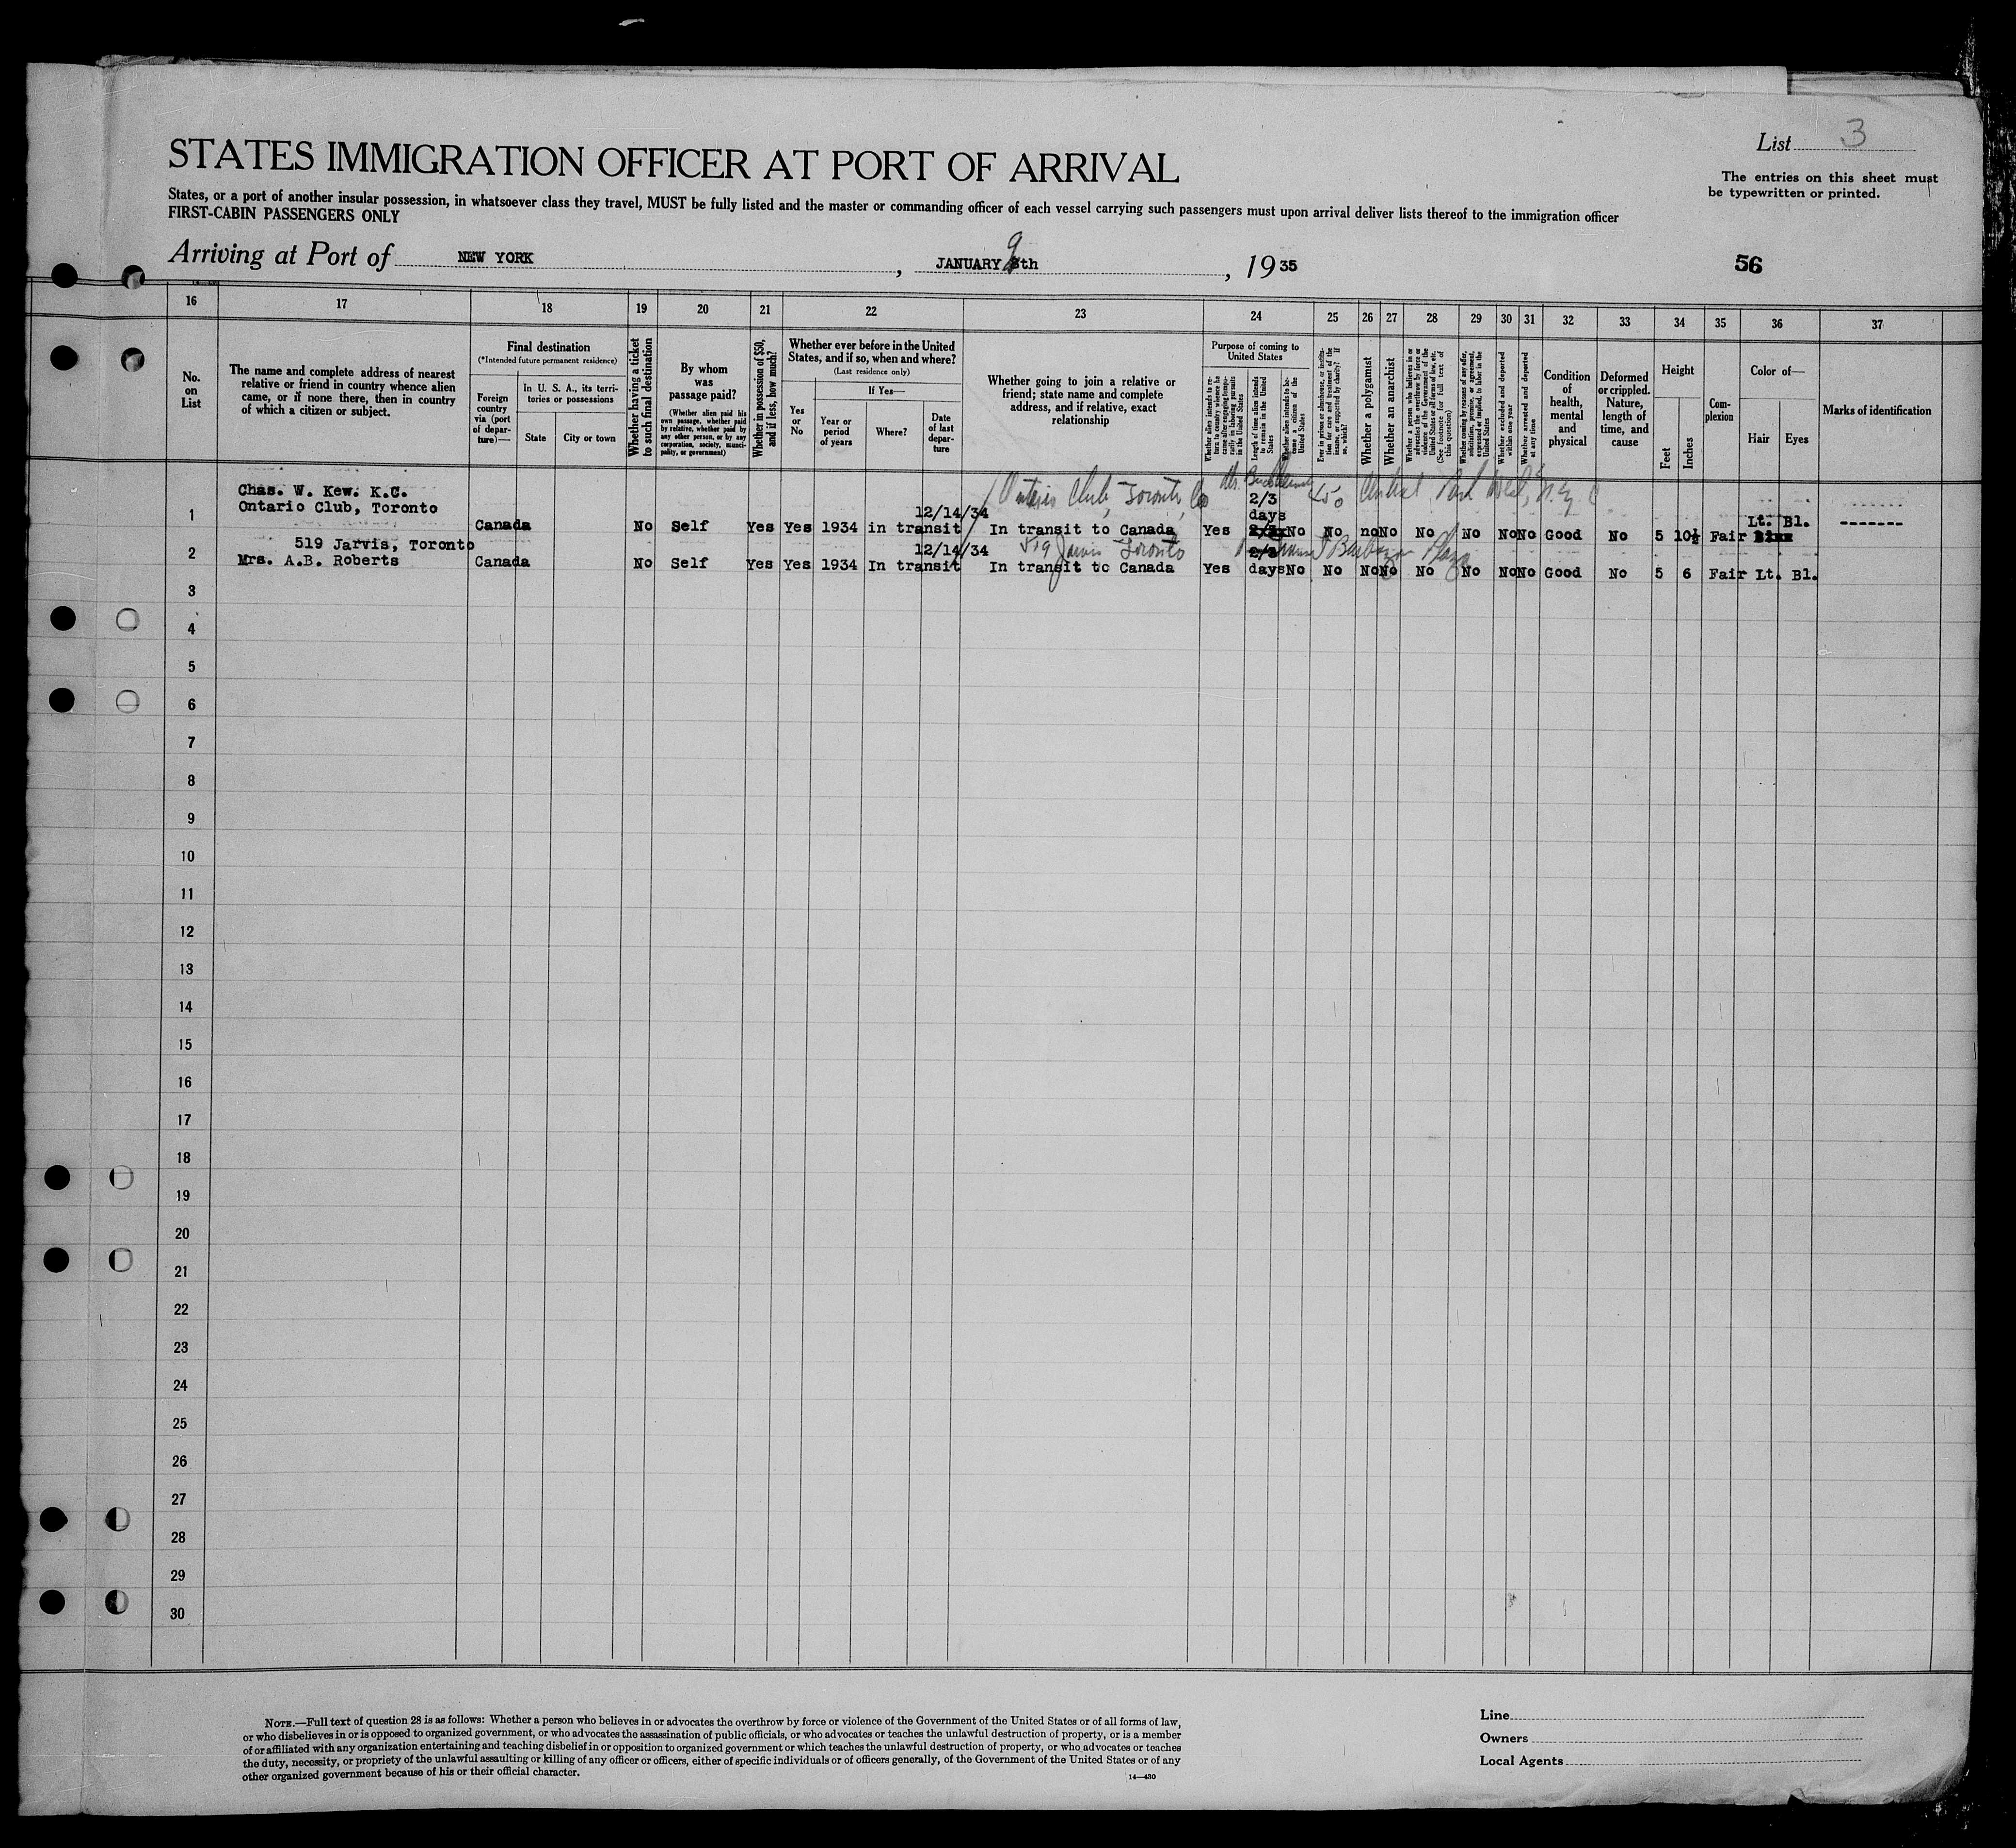 List 3
STATES IMMIGRATION OFFICER AT PORT OF ARRIVAL
The entries on this sheet must
be typewritten or printed.
States, or a port of another insular possession, in whatsoever class they travel, MUST be fully listed and the master or commanding officer of each vessel carrying such passengers must upon arrival deliver lists thereof to the immigration officer
FIRST-CABIN PASSENGERS ONLY
Arriving at Port of NEW YORK, JANUARY 9th, 1935
56
16 17 18 19 20 21 22 23 24 25 26 27 28 29 30 31 32 33 34 35 36 37
No. on List
The name and complete address of nearest
relative or friend in country whence alien
came, or if none there, then in country
of which a citizen or subject.
Final destination
(*Intended future permanent residence)
Foreign country via (port of depar-ture)—
In U. S. A., its terri-tories or possessions
State
City or town
Whether having a ticket to such final destination
By whom was passage paid?
(Whether alien paid his own passage, whether paid by relative, whether paid by any other person, or by any corporation, society, munici-pality, or government)
Whether in possession of $50, and if less, how much?
Whether ever before in the United States, and if so, when and where?
(Last residence only)
Yes or No
If Yes—
Year or period of years
Where?
Date of last depar-ture
Whether going to join a relative or
friend; state name and complete
address, and if relative, exact
relationship
Purpose of coming to United States
Whether alien intends to re-turn to country whence he came after engaging tempo-rarily in laboring pursuits in the United States
Length of time alien intends to remain in the United States
Whether alien intends to be-come a citizen of the United States
Ever in prison or almshouse, or institu-tion for care and treatment of the insane, or supported by charity? If so, which?
Whether a polygamist
Whether an anarchist
Whether a person who believes in or advocates the overthrow by force or violence of the Government of the United States or all forms of law, etc. (See footnote for full text of this question)
Whether coming by reason of any offer, solicitation, promise, or agreement, expressed or implied, to labor in the United States
Whether excluded and deported within one year
Whether arrested and deported at any time
Condition of health, mental and physical
Deformed or crippled. Nature, length of time, and cause
Height
Feet
Inches
Com-plexion
Color of—
Hair
Eyes
Marks of identification
Ontario Club, Toronto, Ca 450 Central Park West, N.Y.C
Chas. W. Kew. K.C.
Ontario Club, Toronto
1 Canada No Self Yes Yes 1934 in transit 12/14/34 In transit to Canada Yes 2/3 days No No no No No No No No Good No 5 10½ Fair Lt. Bl. -------
519 Jarvis Toronto Barbizon Plaza
519 Jarvis, Toronto
2 Mrs. A.B. Roberts Canada No Self Yes Yes 1934 In transit 12/14/34 In transit to Canada Yes 2/3 days No No No No No No No No Good No 5 6 Fair Lt. Bl.
3
4
5
6
7
8
9
10
11
12
13
14
15
16
17
18
19
20
21
22
23
24
25
26
27
28
29
30
NOTE.—Full text of question 28 is as follows: Whether a person who believes in or advocates the overthrow by force or violence of the Government of the United States or of all forms of law,
or who disbelieves in or is opposed to organized government, or who advocates the assassination of public officials, or who advocates or teaches the unlawful destruction of property, or is a member
of or affiliated with any organization entertaining and teaching disbelief in or opposition to organized government or which teaches the unlawful destruction of property, or who advocates or teaches
the duty, necessity, or propriety of the unlawful assaulting or killing of any officer or officers, either of specific individuals or of officers generally, of the Government of the United States or of any
other organized government because of his or their official character.
14—430
Line
Owners
Local Agents